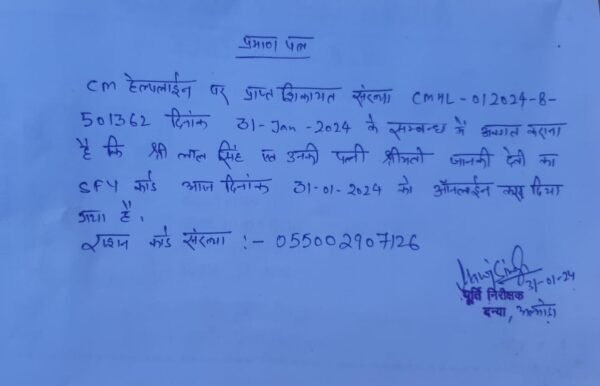 प्रमाण पत्र
CM हेल्पलाईन पर प्राप्त शिकायत संख्या CMHL-012024-8-
501362 दिनांक 31-Jan-2024 के सम्बन्ध में अवगत कराना
है कि श्री लाल सिंह एवं उनकी पत्नी श्रीमती जानकी देवी का
SFY कार्ड आज दिनांक 31-01-2024 को ऑनलाईन कर दिया
गया है।
राशन कार्ड संख्या :- 055002907126
31-01-24
पूर्ति निरीक्षक
दन्या, अल्मोड़ा